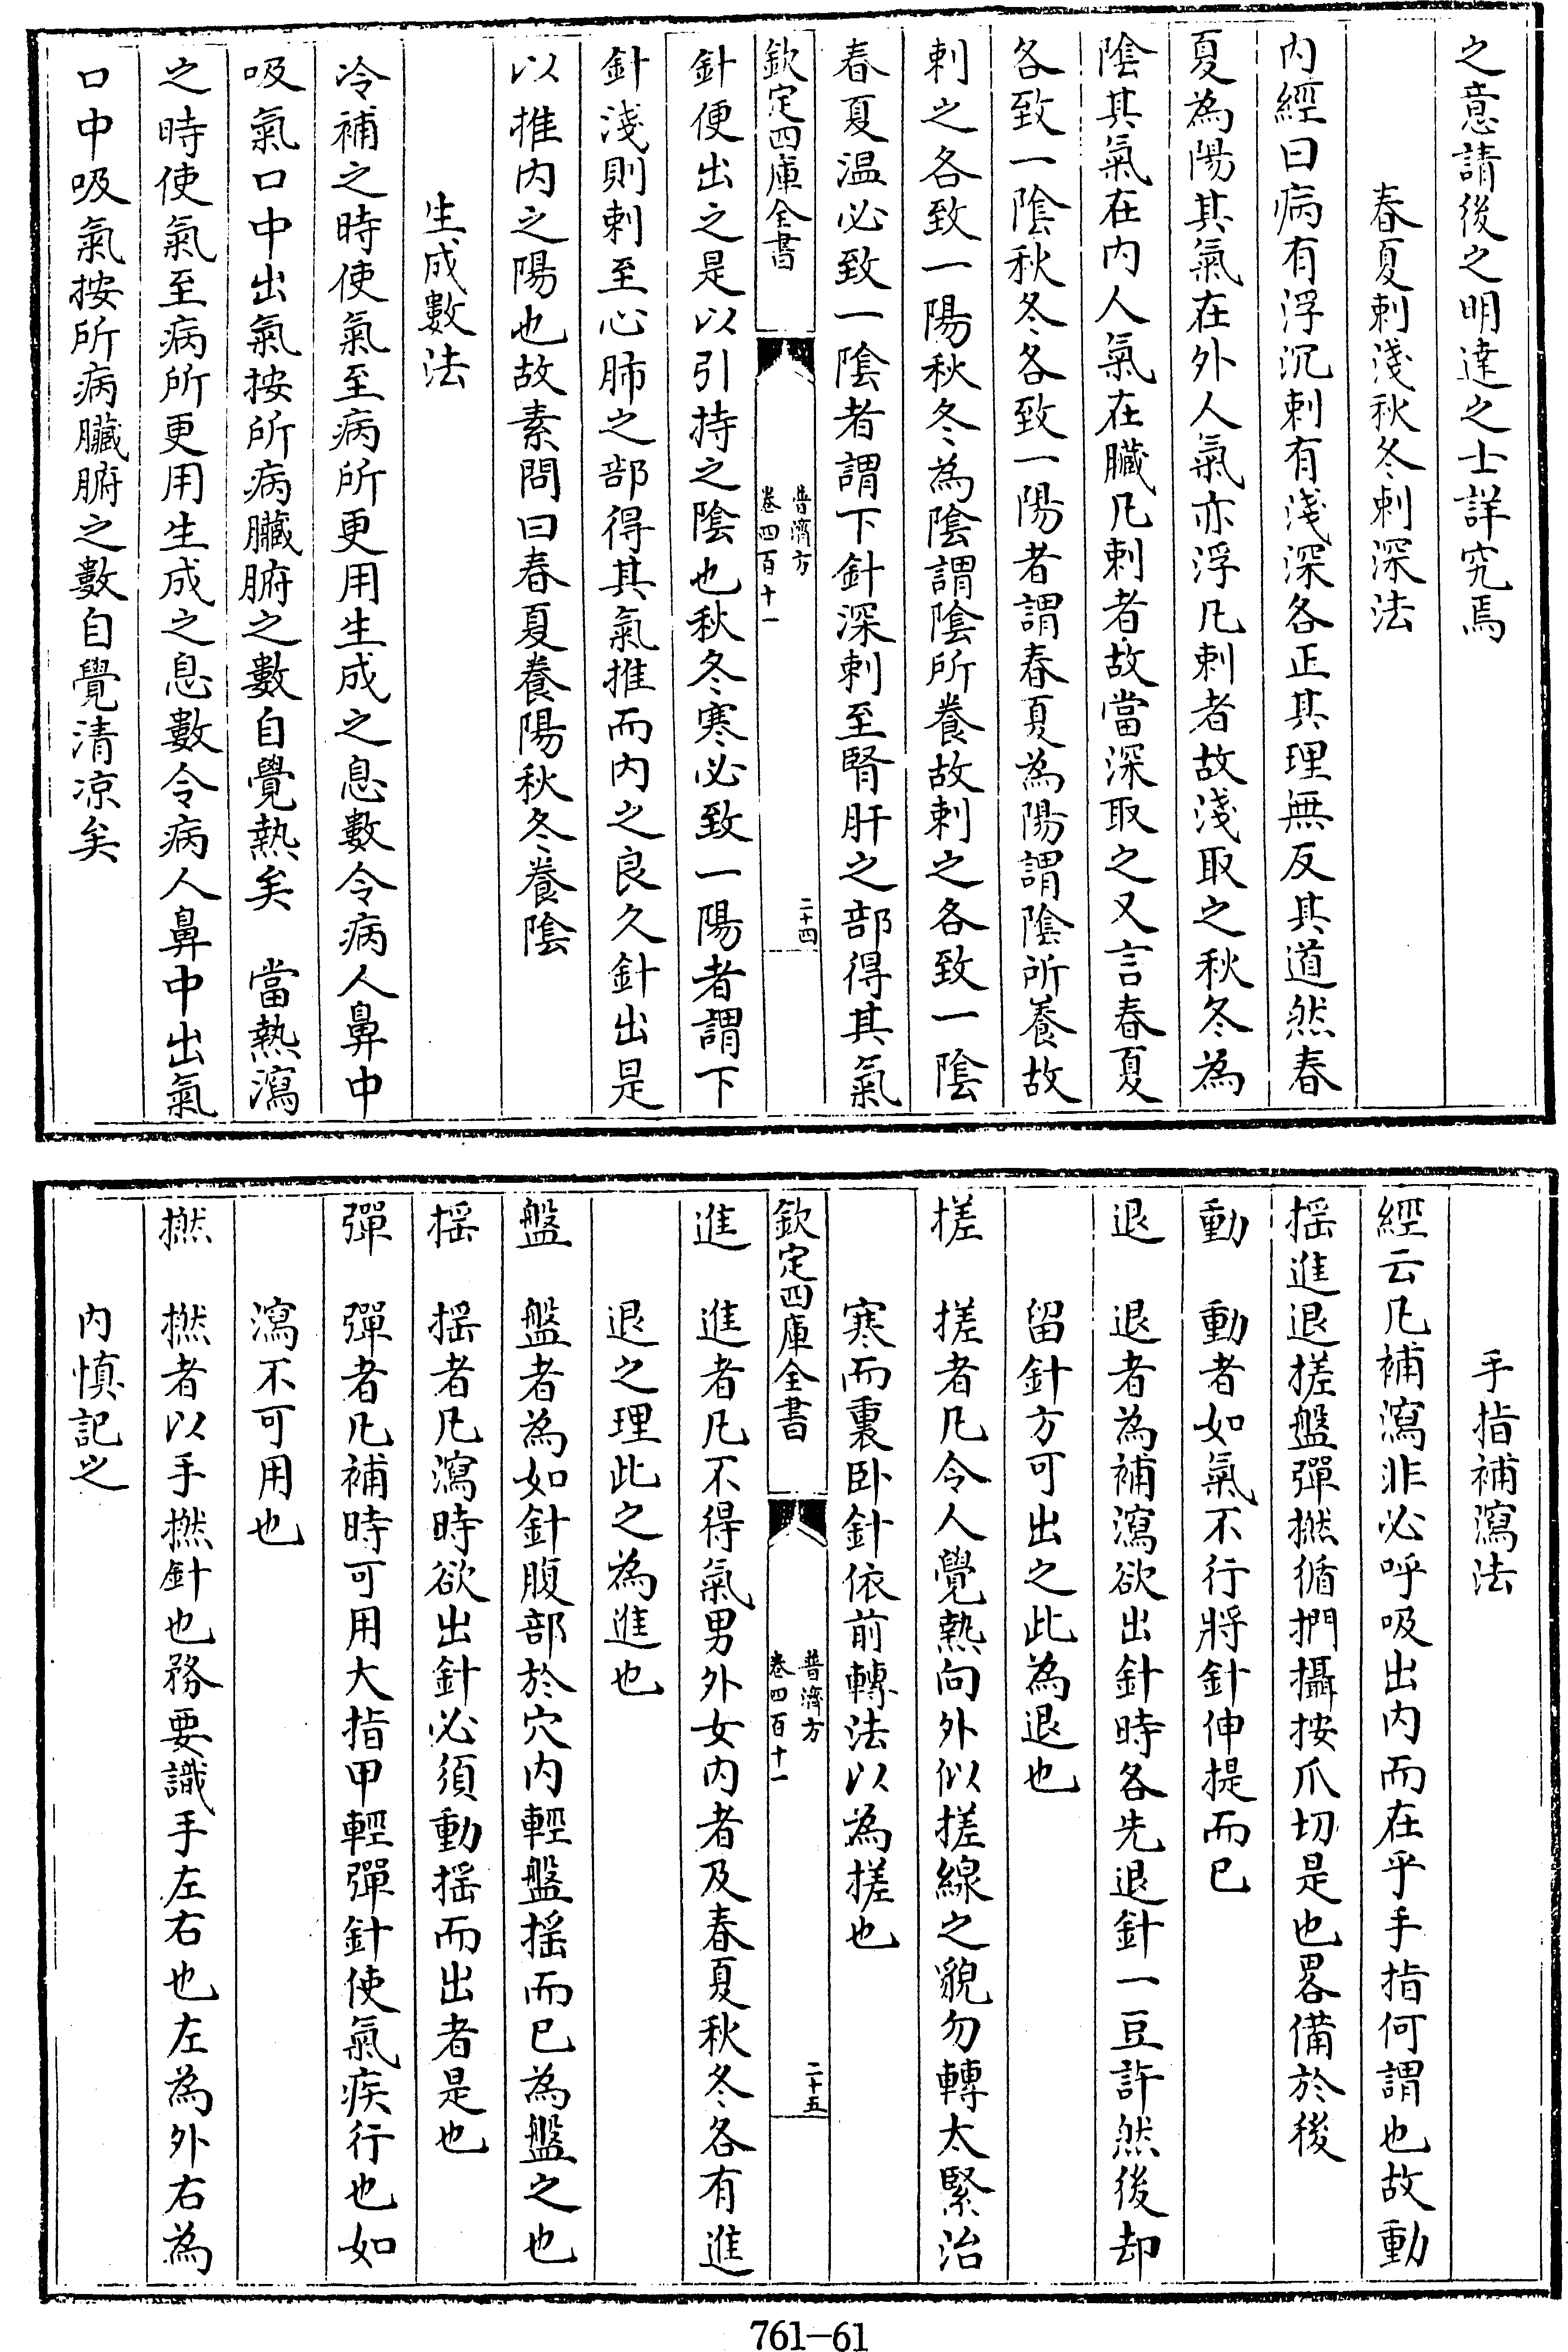 之意請後之明達之士詳究焉
春夏刺淺秋冬刺深法
內經曰病有浮沉刺有淺深各正其理無反其道然春
夏為陽其氣在外人氣亦浮凡刺者故淺取之秋冬為
陰其氣在內人氣在臟凡刺者故當深取之又言春夏
各致一陰秋冬各致一陽者謂春夏為陽謂陰所養故
刺之各致一陽秋冬為陰謂陰所養故刺之各致一陰
春夏温必致一陰者謂下針深刺至腎肝之部得其氣
欽定四庫全書
普濟方
卷四百十一
二十四
針便出之是以引持之陰也秋冬寒必致一陽者謂下
針淺則刺至心肺之部得其氣推而内之良久針出是
以推内之陽也故素問曰春夏養陽秋冬養陰
生成數法
冷補之時使氣至病所更用生成之息數令病人鼻中
吸氣口中出氣按所病臟腑之數自覺熱矣　當熱瀉
之時使氣至病所更用生成之息數令病人鼻中出氣
口中吸氣按所病臟腑之數自覺清凉矣
手指補瀉法
經云凡補瀉非必呼吸出内而在乎手指何謂也故動
揺進退搓盤彈撚循捫攝按爪切是也畧備於後
動　動者如氣不行將針伸提而已
退　退者為補瀉欲出針時各先退針一豆許然後却
留針方可出之此為退也
搓　搓者凡令人覺熱向外似搓線之貌勿轉太緊治
寒而裏卧針依前轉法以為搓也
欽定四庫全書
普濟方
卷四百十一
二十五
進　進者凡不得氣男外女内者及春夏秋冬各有進
退之理此之為進也
盤　盤者為如針腹部於穴内輕盤揺而已為盤之也
揺　揺者凡瀉時欲出針必須動揺而出者是也
彈　彈者凡補時可用大指甲輕彈針使氣疾行也如
瀉不可用也
撚　撚者以手撚針也務要識手左右也左為外右為
内慎記之
761—61